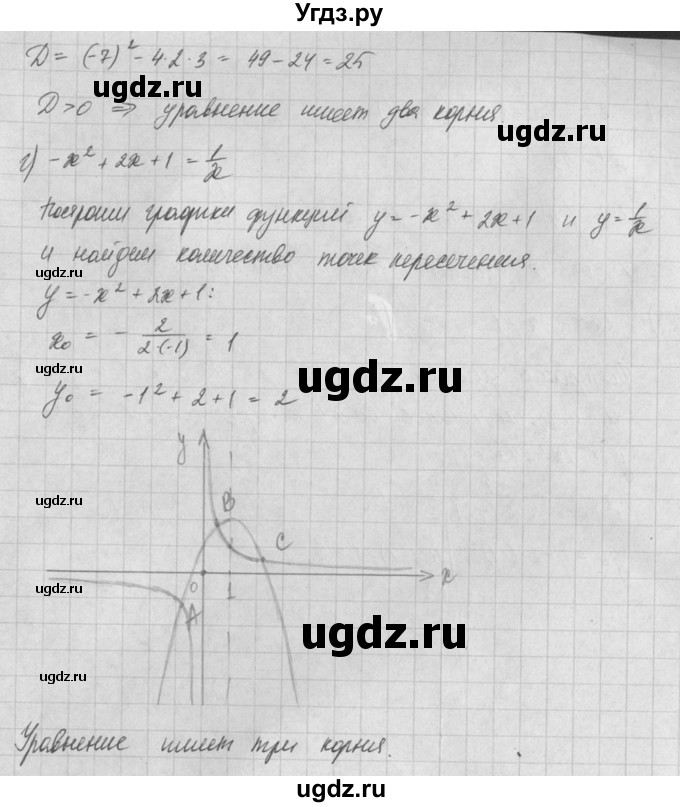 Угдз.ру
D = (-7)² - 4·2·3 = 49 - 24 = 25
ugdz.ru ugdz.ru
D > 0 ⇒ уравнение имеет два корня
ugdz.ru
г) -x² + 2x + 1 = 1/x
Построим графики функций y = -x² + 2x + 1 и y = 1/x
ugdz.ru
и найдём количество точек пересечения.
y = -x² + 2x + 1:
x₀ = - 2/(2·(-1)) = 1
ugdz.ru ugdz.ru
y₀ = -1² + 2 + 1 = 2
y
ugdz.ru B
C
0 1 x
ugdz.ru
A
ugdz.ru
ugdz.ru
Уравнение имеет три корня.
ugdz.ru
ugdz.ru